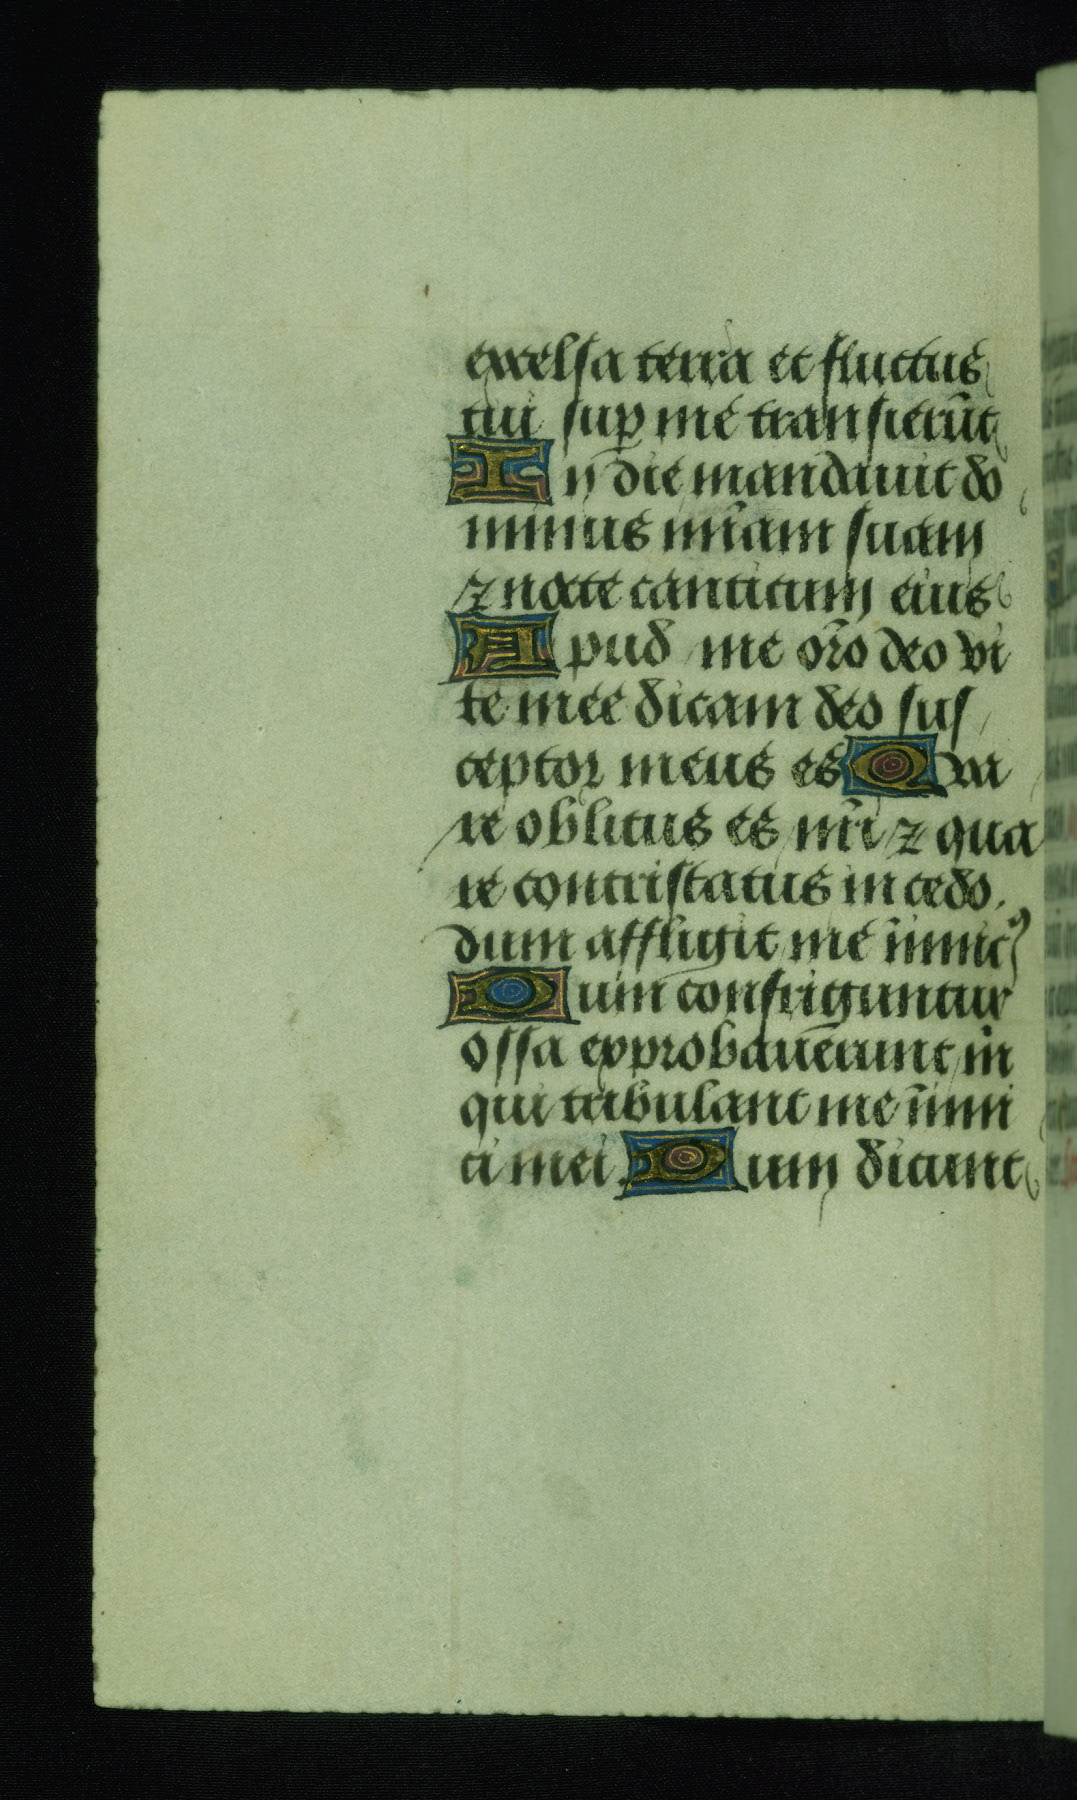 excelsa terra et fluctus
tui sup me transierūt
In die mandauit do
minus mīam suam
⁊ nocte canticum eius
Apud me orō deo vi
te mee dicam deo sus
ceptor meus es Qua
re oblitus es mei ⁊ qua
re contristatus incedo.
dum affligit me inimicꝰ
Dum confriguntur
ossa exprobauerunt m̄
qui tribulant me inimi
ci mei. Dum dicunt